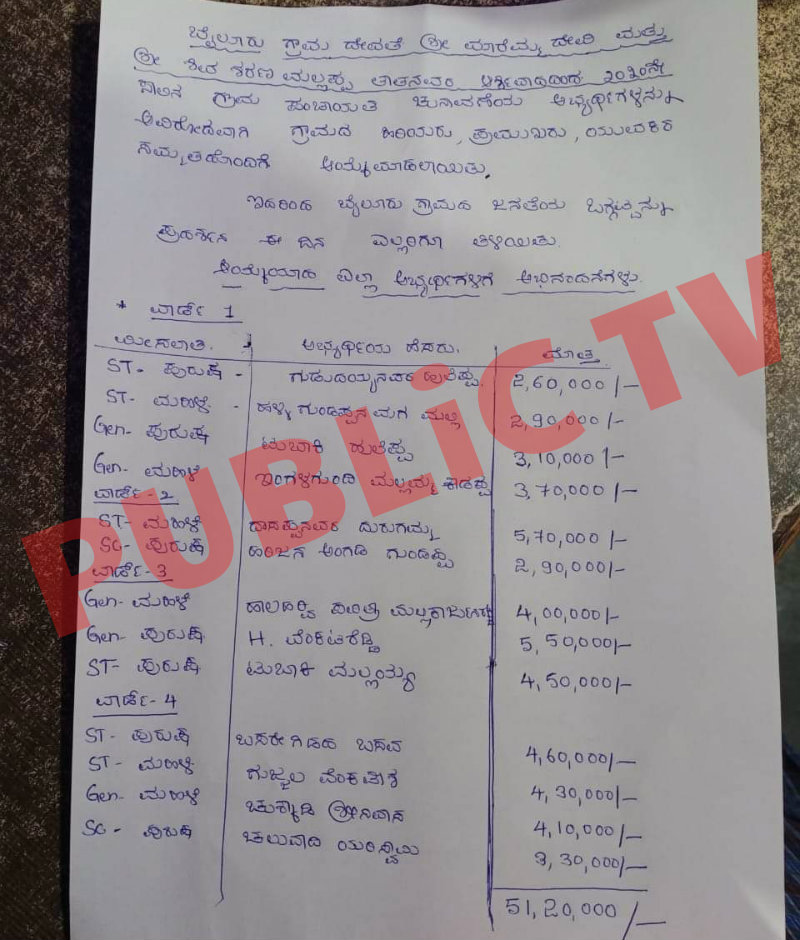 ಬೈಲೂರು ಗ್ರಾಮ ದೇವತೆ ಶ್ರೀ ಮಾರೆಮ್ಮ ದೇವಿ ಮತ್ತು
ಶ್ರೀ ಶಿವ ಶರಣ ಮಲ್ಲಪ್ಪ ತಾತನವರ ಆಶೀರ್ವಾದದಿಂದ ೨೦೨೦ನೇ
ಸಾಲಿನ ಗ್ರಾಮ ಪಂಚಾಯತಿ ಚುನಾವಣೆಯ ಅಭ್ಯರ್ಥಿಗಳನ್ನು
ಅವಿರೋಧವಾಗಿ ಗ್ರಾಮದ ಹಿರಿಯರು, ಪ್ರಮುಖರು, ಯುವಕರ
ಸಮ್ಮತಹೊಂದಿಗೆ ಆಯ್ಕೆಮಾಡಲಾಯಿತು.
ಇದರಿಂದ ಬೈಲೂರು ಗ್ರಾಮದ ಜನತೆಯ ಒಗ್ಗಟ್ಟನ್ನು
ಪ್ರದರ್ಶನ ಈ ದಿನ ಎಲ್ಲರಿಗೂ ತಿಳಿಯಿತು.
ಆಯ್ಕೆಯಾದ ಎಲ್ಲಾ ಅಭ್ಯರ್ಥಿಗಳಿಗೆ ಅಭಿನಂದನೆಗಳು.
* ವಾರ್ಡ್ 1
ಮೀಸಲಾತಿ. ಅಭ್ಯರ್ಥಿಯ ಹೆಸರು. ಮೊತ್ತ
ST- ಪುರುಷ - ಗುಡುದಯ್ಯನವರ ಹುಲೆಪ್ಪ. 2,60,000/-
ST- ಮಹಿಳೆ - ಹಳ್ಳಿ ಗುಂಡಪ್ಪನ ಮಗ ಮಲ್ಲಿ 2,90,000/-
Gen- ಪುರುಷ ಟುಬಾಕಿ ಹುಲೆಪ್ಪ 3,10,000/-
Gen- ಮಹಿಳೆ ಮಲ್ಲಮ್ಮ 3,70,000/-
ವಾರ್ಡ್-2
ST- ಮಹಿಳೆ ದಾಸಪ್ಪನವರ ದುರುಗಮ್ಮ 5,70,000/-
SC- ಪುರುಷ ಹರಿಜನ ಅಂಗಡಿ ಗುಂಡಪ್ಪ 2,90,000/-
ವಾರ್ಡ್-3
Gen- ಮಹಿಳೆ ಹಾಲಹರ್ವಿ 4,00,000/-
Gen- ಪುರುಷ H. ವೆಂಕಟರೆಡ್ಡಿ 5,50,000/-
ST- ಪುರುಷ ಟುಬಾಕಿ ಮಲ್ಲಯ್ಯ 4,50,000/-
ವಾರ್ಡ್-4
ST- ಪುರುಷ ಬಸರೀಗಿಡದ ಬಸವ 4,60,000/-
ST- ಮಹಿಳೆ ಗುಜ್ಜಲ ವೆಂಕಟೇಶ 4,30,000/-
Gen- ಮಹಿಳೆ ಶ್ರೀನಿವಾಸ 4,10,000/-
SC- ಪುರುಷ ಚಲುವಾದಿ ಯರಿಸ್ವಾಮಿ 3,30,000/-
51,20,000/-
PUBLiC TV